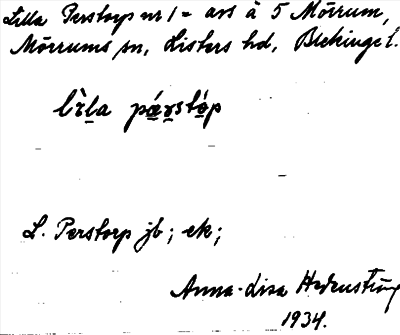 Lilla Perstorp nr 1 = avs å 5 Mörrum,
Mörrums sn, Listers hd, Blekinge l.
lìl̠a pá̠r̠stó̠p
L. Perstorp jb; ek;
Anna-Lisa
1934.